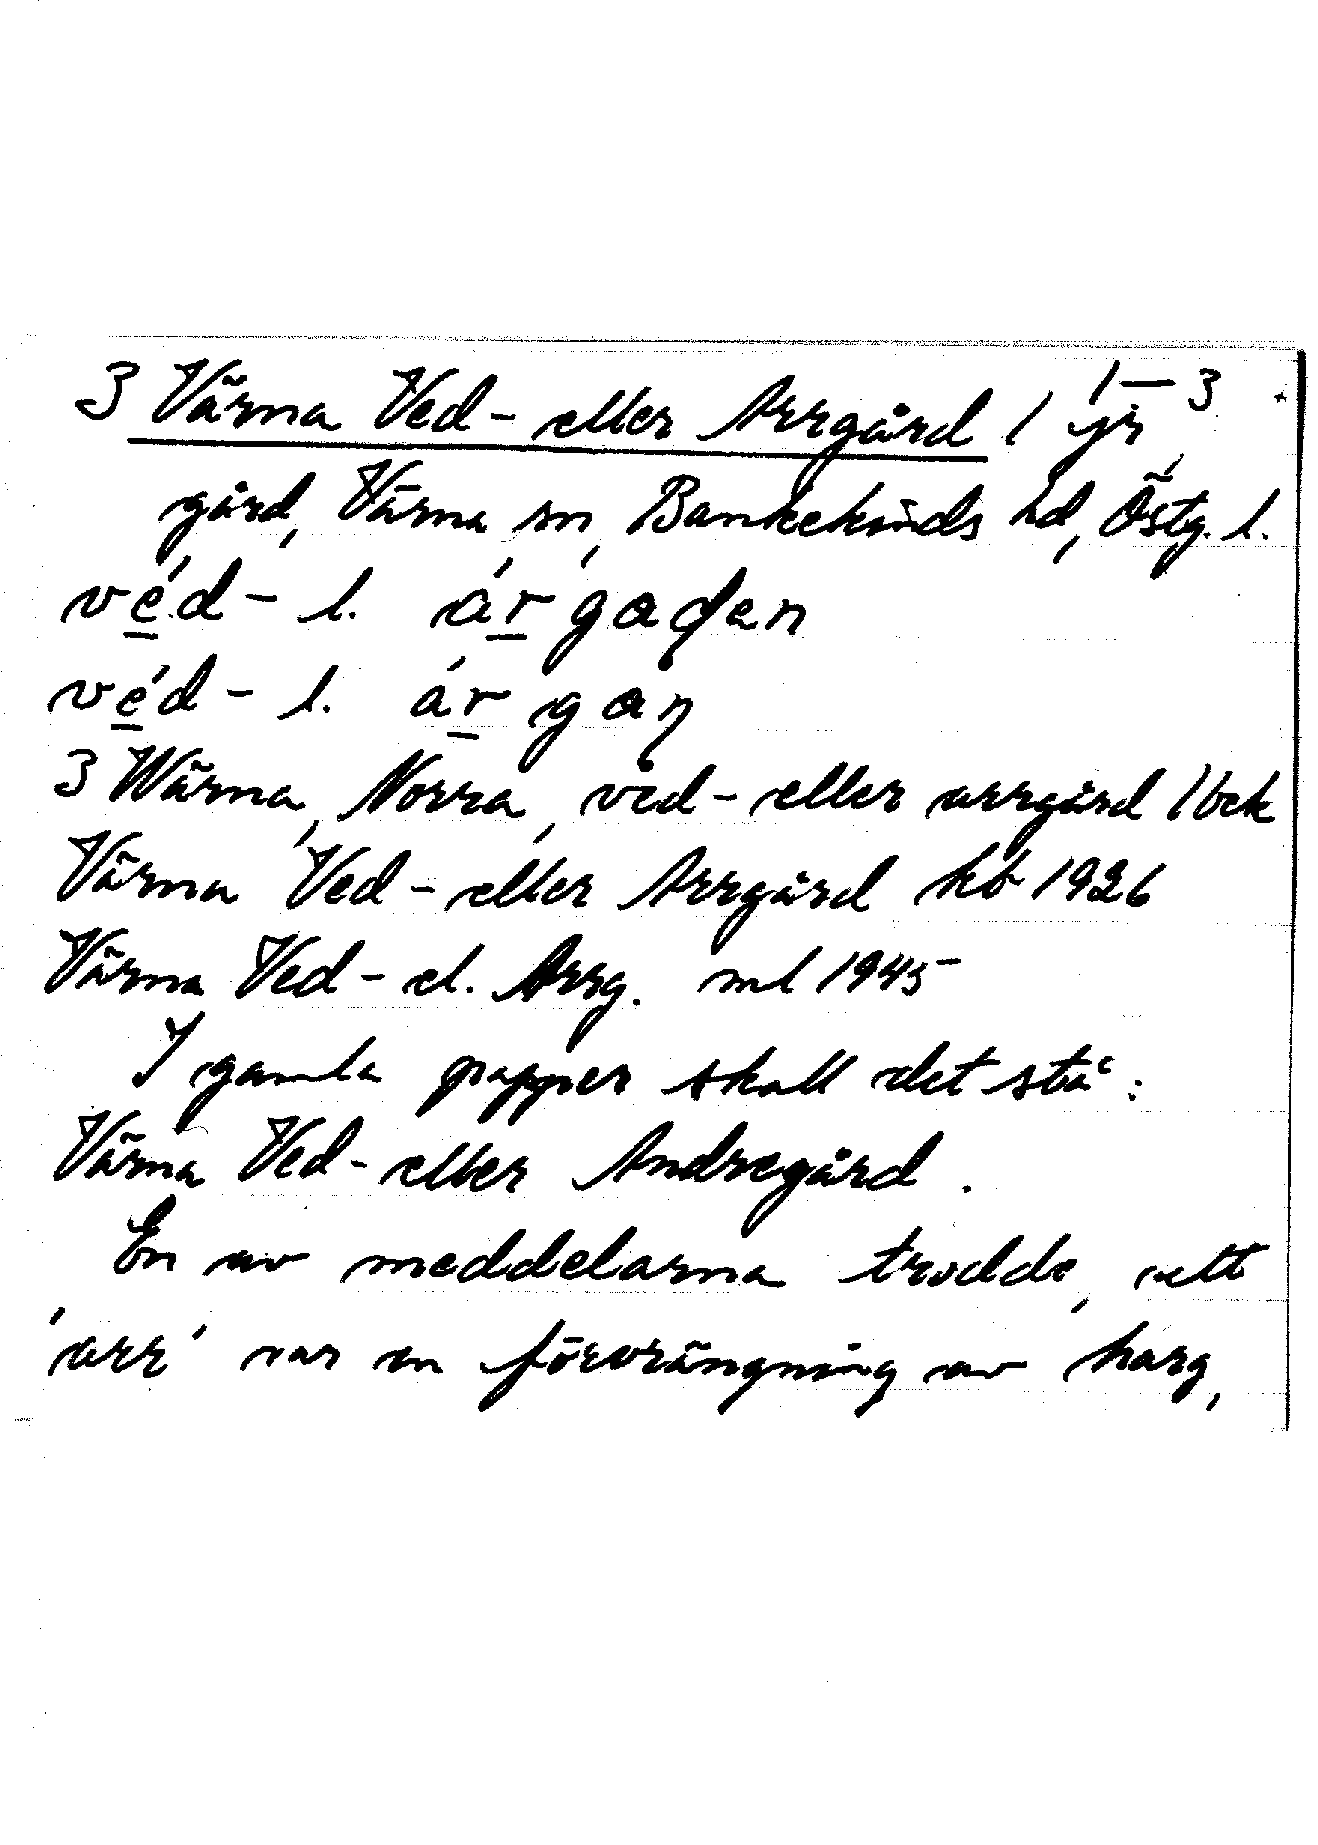 1—3
3 Värna Ved- eller Arrgård 1 jr
gård, Värna sn, Bankekinds hd, Östg. l.
véd- l. árgaden
véd- l. árgan
3 Wärna, Norra, ved- eller arrgård 1 bek
Värna Ved- eller Arrgård kb 1926
Värna Ved- el. Arrg. ml 1945
I gamla papper skall det stå:
Värna Ved- eller Andregård.
En av meddelarna trodde, att
'arr' var en förvrängning av harg,